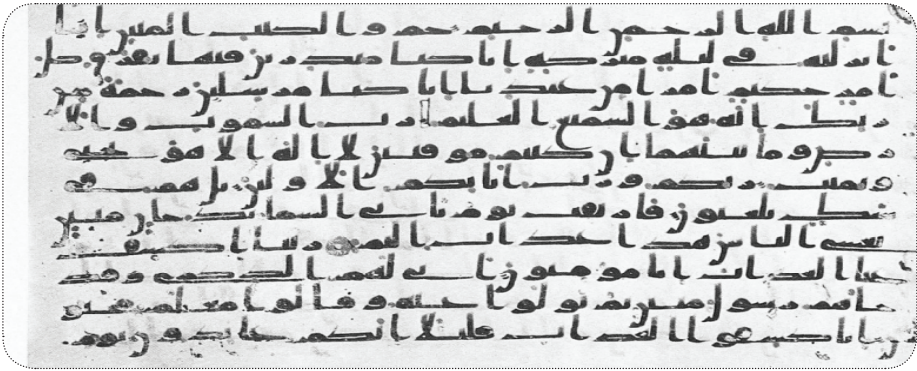 بسم الله الرحمن الرحيم حم والكتب المبين انا
انزلنه في ليلة مبركة انا كنا منذرين فيها يفرق كل
امر حكيم امرا من عندنا انا كنا مرسلين رحمة من
ربك انه هو السميع العليم رب السموت والا
رض وما بينهما ان كنتم موقنين لا اله الا هو يحيي
ويميت ربكم ورب ابايكم الاولين بل هم في
شك يلعبون فارتقب يوم تاتي السما بدخان مبين
يغشى الناس هذا عذاب اليم ربنا اكشف
عنا العذاب انا مومنون انى لهم الذكرى وقد
جاهم رسول مبين ثم تولوا عنه وقالوا معلم مجنو
ن انا كاشفوا العذاب قليلا انكم عايدون يوم